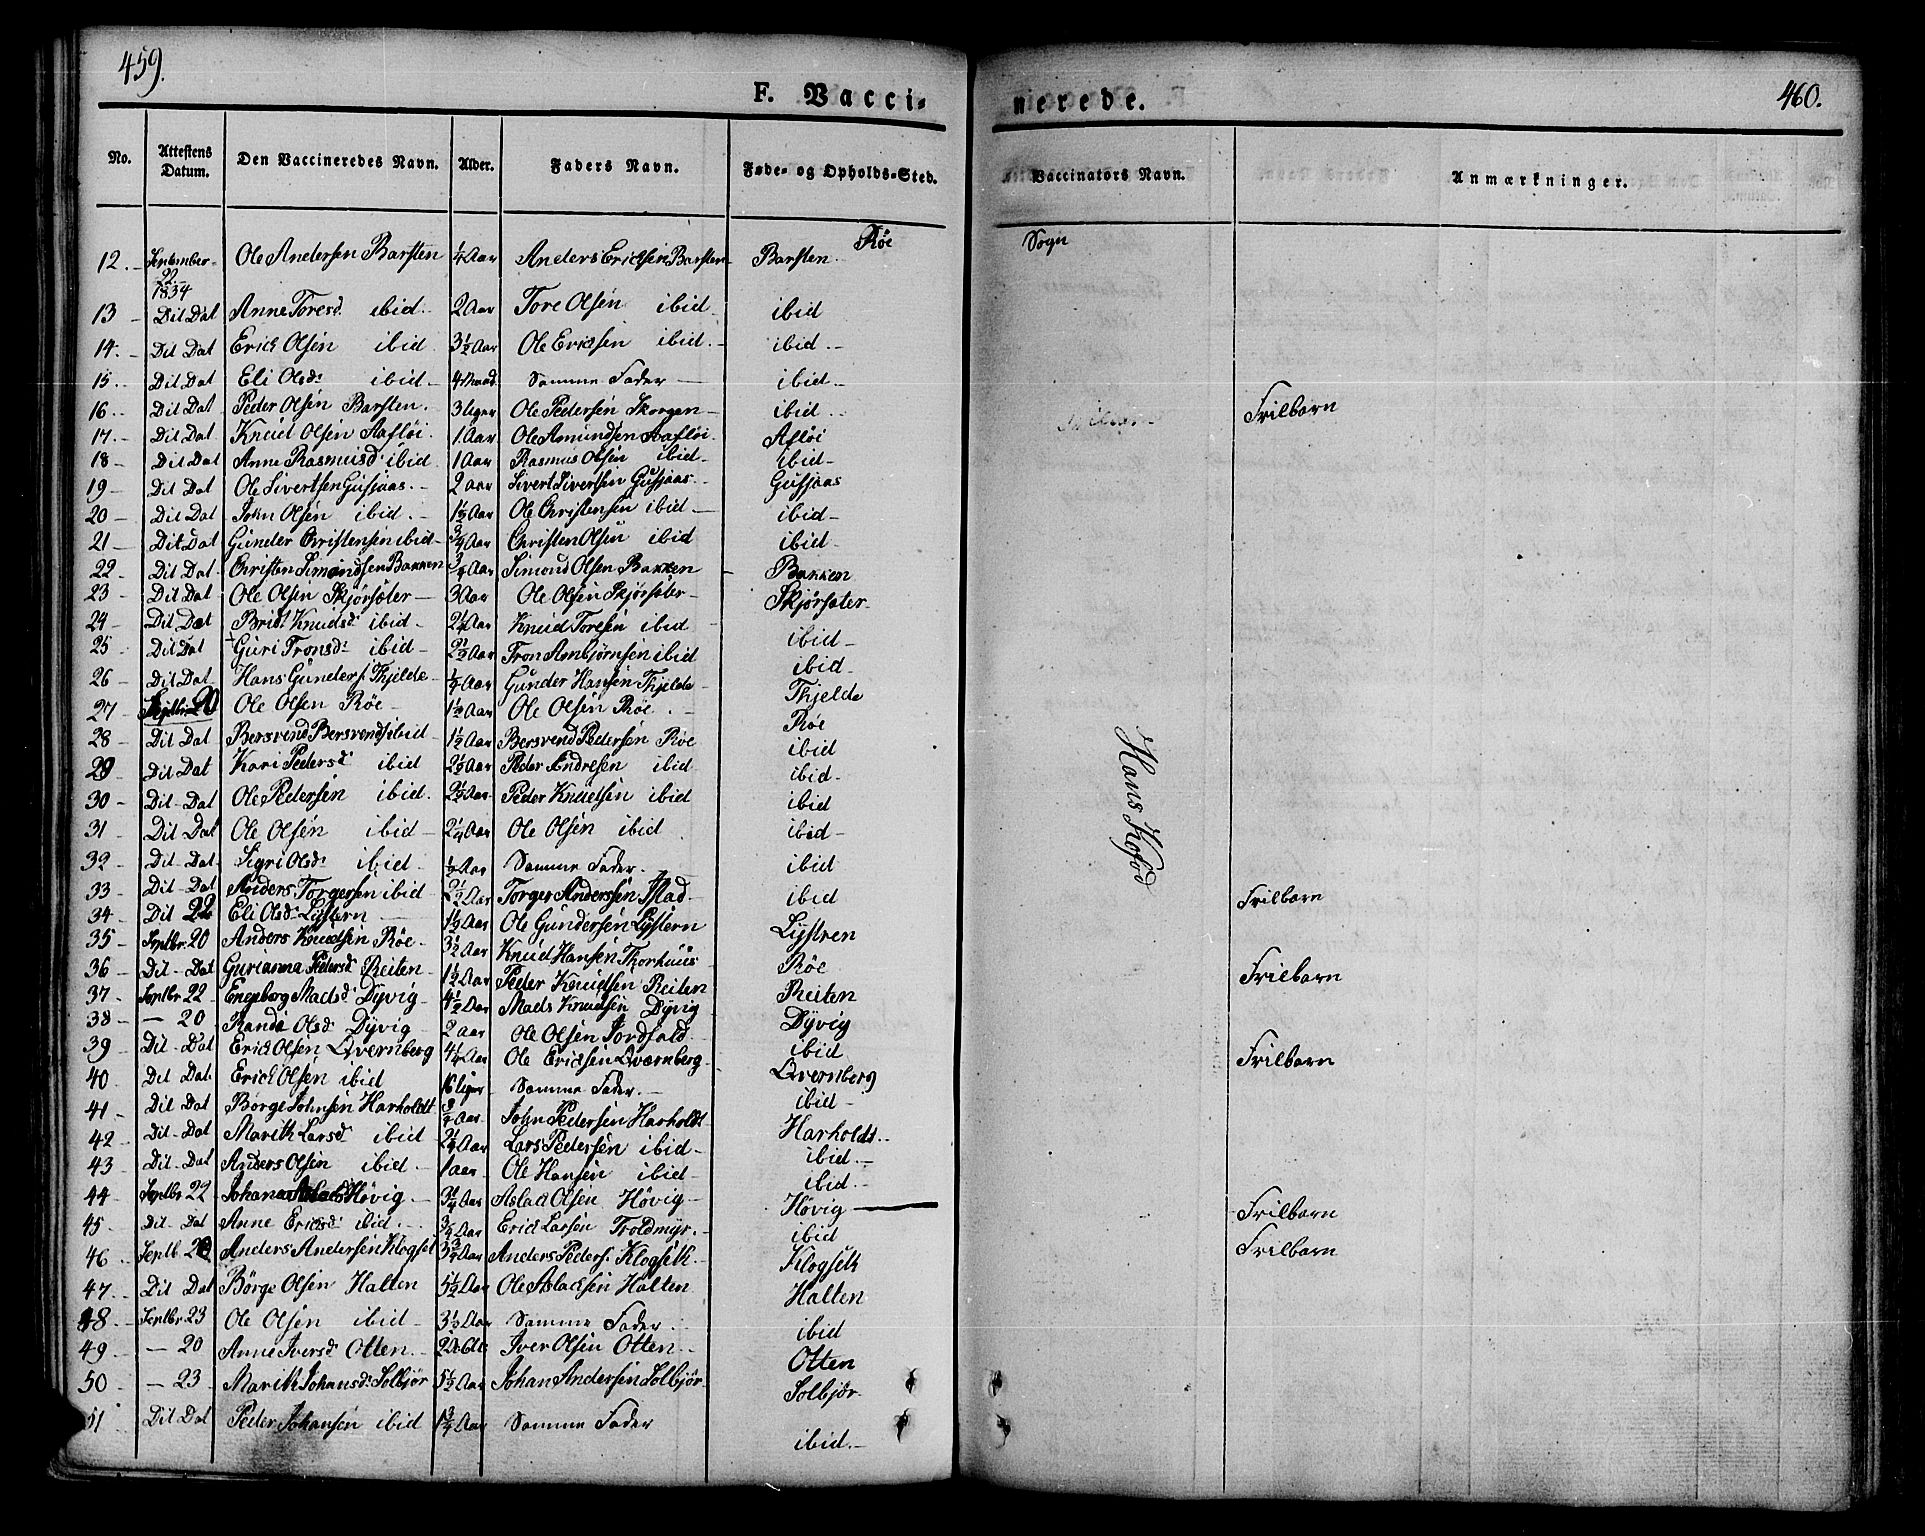 459.
460.
F. Vacci-
nerede.
No. Attestens Datum. Den Vaccineredes Navn. Alder. Faders Navn. Føde- og Opholds-Sted. Vaccinators Navn. Anmærkninger.
Røe Sogn
12. September 22 1834 Ole Andersen Barsten ¼ Aar Anders Ericksen Barsten Barsten
13 Dit Dat Anne Toresd. ibid. 2 Aar Tore Olsen ibid ibid
14. Dit Dat Erick Olsen ibid 3½ Aar Ole Ericksen ibid. ibid.
15. Dit Dat Eli Olsd: ibid 4 Maad Samme Fader ibid
16. Dit Dat Peder Olsen Barsten. 3 Uger Ole Pedersen Skorgen ibid. Frilbarn
17. Dit Dat Knud Olsen Aafløi. 1 Aar Ole Amundsen Aafløi Afløi
18 Dit Dat Anne Rasmusd ibid 1 Aar Rasmus Olsen ibid ibid
19 Dit Dat Ole Sivertsen Gusjaas. 2 Aar Sivert Sivertsen Gusjaas. Gusjaas
20 Dit Dat John Olsen ibid. 1½ Aar Ole Christensen ibid ibid
21 Dit Dat Gunder Christensen ibid ¾ Aar Christen Olsen ibid ibid
22 Dit Dat Christen Simondsen Bakken ¾ Aar Simond Olsen Bakken Bakken
23 Dit Dat Ole Olsen Skjørsæter 3 Aar Ole Olsen Skjørsæter Skjørsæter
24 Dit Dat Brit Knudsd: ibid 2¼ Aar Knud Toresen ibid ibid
25 Dit Dat Guri Tronsd: ibid 2½ Aar Tron Ambjørnsen ibid ibid
26 Dit Dat Hans Gunders. Thjelde ½ Aar Gunder Hansen Thjelde Thjelde
27 Septbr 20 Ole Olsen Røe 1½ Aar Ole Olsen Røe Røe
28 Dit Dat Bersvend Bersvends. ibid 1½ Aar Bersvend Pedersen Røe ibid
29 Dit Dat Kari Pedersd: ibid 2½ Aar Peder Andresen ibid ibid
30 Dit Dat Ole Pedersen ibid. 2½ Aar Peder Knudsen ibid ibid
31 Dit Dat Ole Olsen ibid 2¼ Aar Ole Olsen ibid ibid
32 Dit Dat Sigri Olsd: ibid ½ Aar Samme Fader. ibid
33 Dit Dat Anders Torgersen ibid 2½ Aar Torger Anderssen Stad ibid Frilbarn
34 Dit 22 Eli Olsd: Lystern 1½ Aar Ole Gundersen Lystern Lystren
35 Septbr. 20 Anders Knudsen Røe 3½ Aar Knud Hansen Thorhuus Røe Frilbarn
36 Dit Dat Gurianna Pedersd Reiten 1½ Aar Peder Knudsen Reiten Reiten
37 Septbr 22 Engeborg Madsd: Dyvig 4½ Aar Mads Knudsen Dyvig Dyvig
38 20 Randi Olsd: Dyvig 2 Aar Ole Olsen Jordfald. ibid Frilbarn
39 Dit Dat Erick Olsen Qvernberg 4¼ Aar Ole Ericksen Qværnberg Qvernberg
40 Dit Dat Erick Olsen ibid 16 Uger Samme Fader. ibid
41 Dit Dat Børge Johnsen Harholdt ¾ Aar John Pedersen Harholdt Harholdt.
42 Dit Dat Marith Larsd ibid 2¼ Aar Lars Pedersen ibid ibid.
43 Dit Dat Anders Olsen ibid 1 Aar Ole Hansen ibid ibid.
44 Septbr 22 Johan Høvig 3¼ Aar Aslad Olsen Høvig Høvig Frilbarn
45 Dit Dat Anne Ericksd: ibid. ¾ Aar Erick Larsen Troldmyr. ibid Frilbarn
46 Septb. 20 Anders Andersen Klogset 3¾ Aar Anders Peders. Klogseth. Klogseth
47 Dit Dat Børge Olsen Halten 5½ Aar Ole Aslachsen Halten Halten
48 Septbr. 23 Ole Olsen ibid 3½ Aar Samme Fader. ibid
49 20 Anne Iversd: Otten. Iver Olsen Otten. Otten
50 23 Marith Johansd: Solbjør 5½ Aar Johan Andersen Solbjør Solbjør
51 Dit Dat Peder Johansen ibid 1¾ Aar Samme Fader ibid.
Hans Kofod